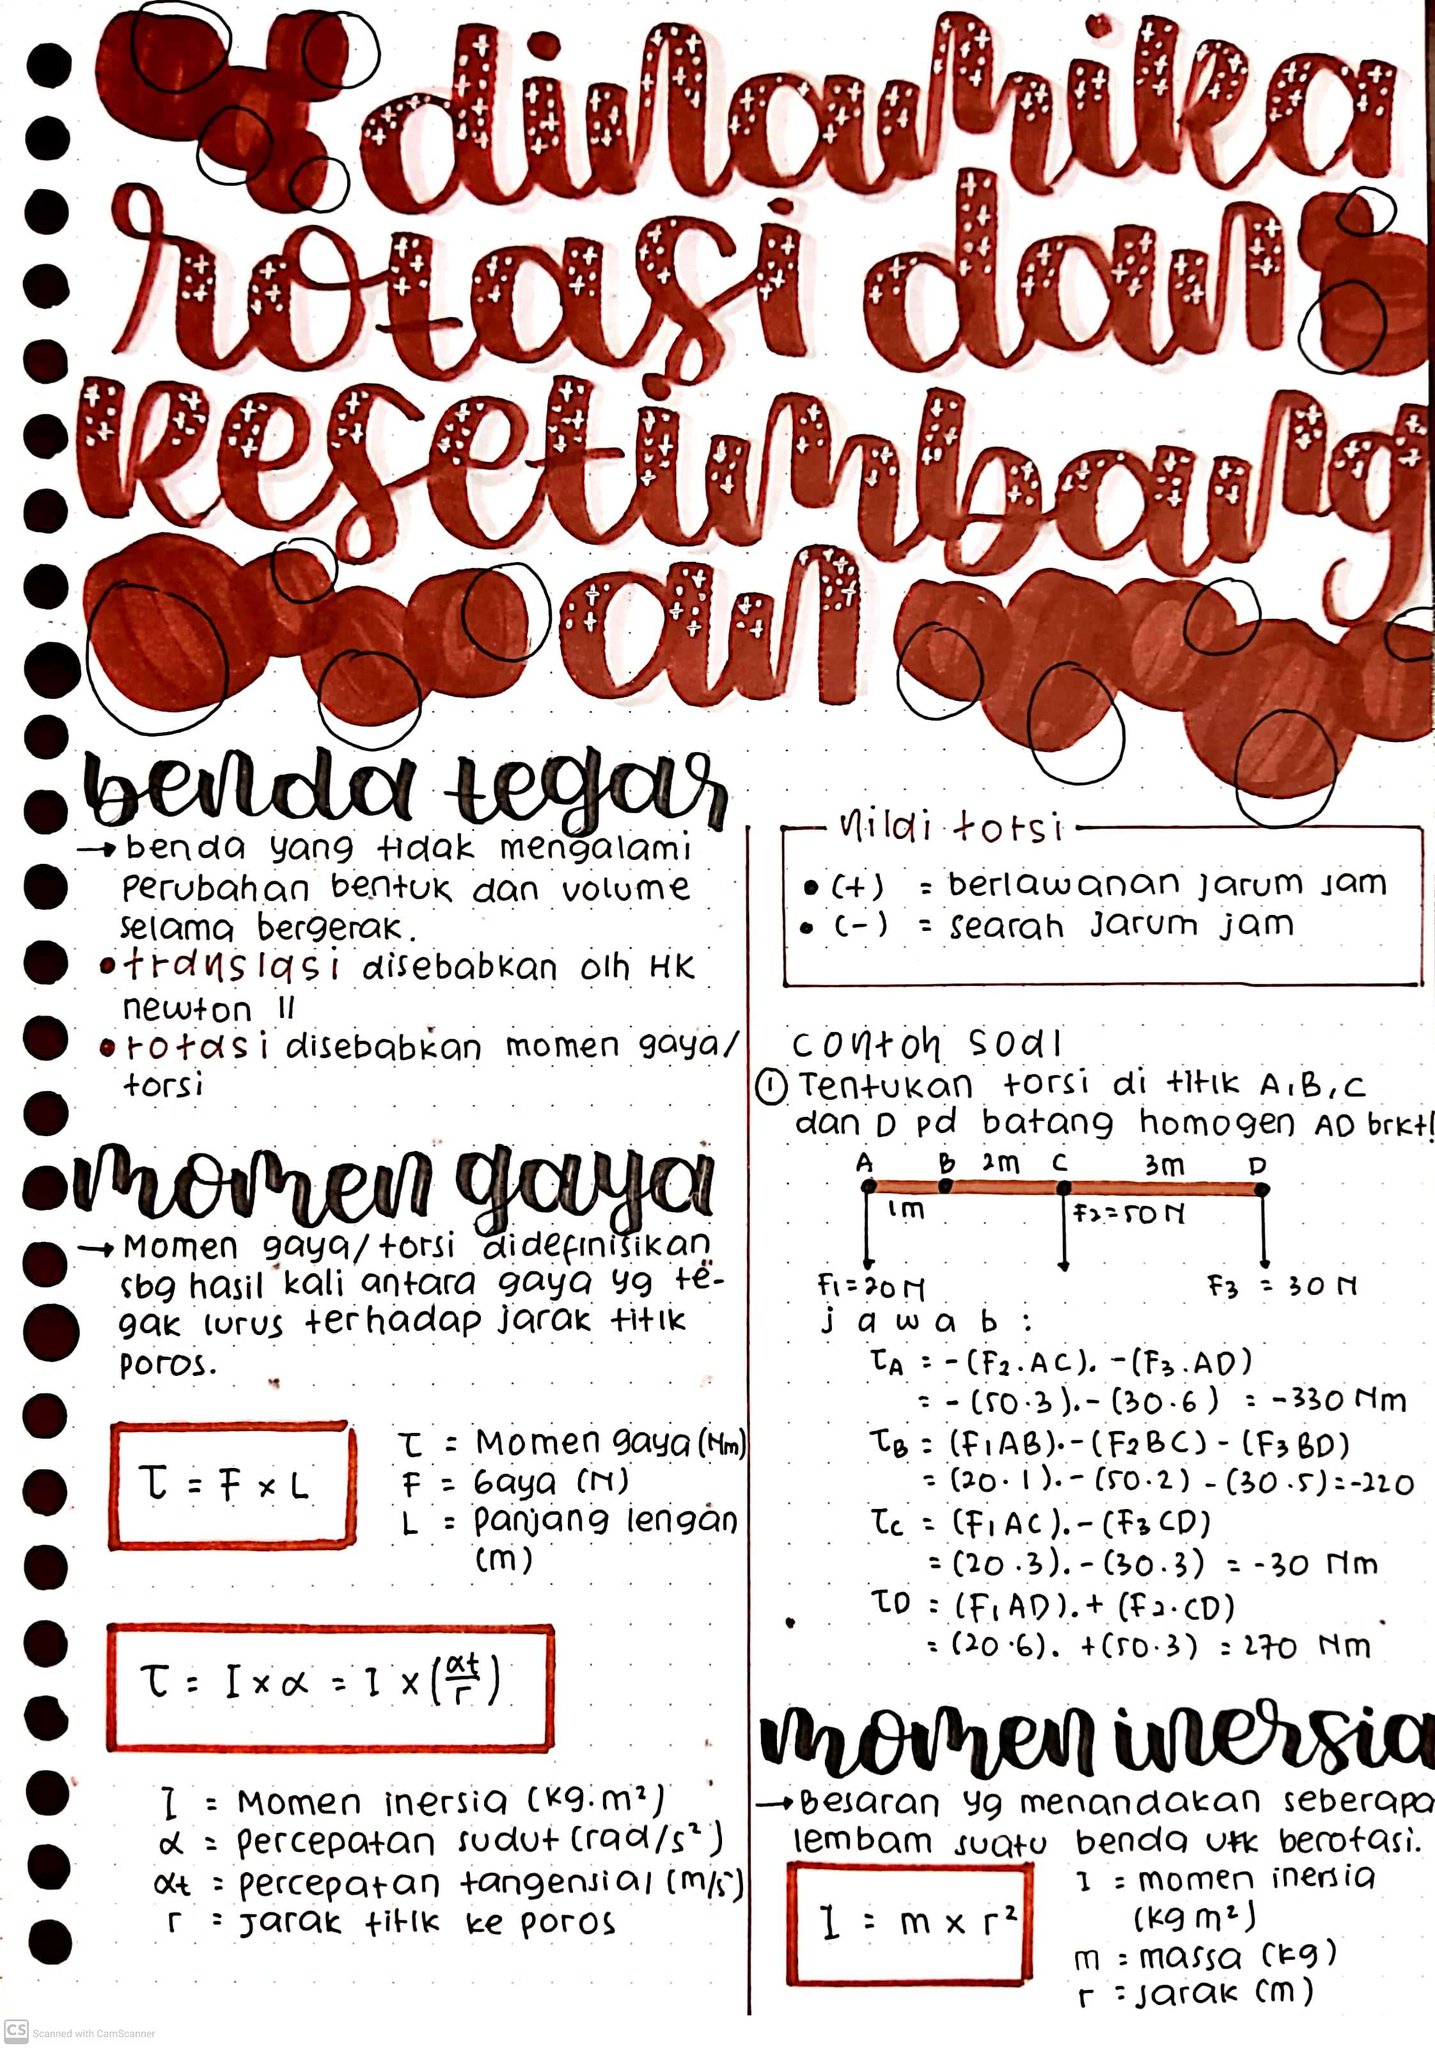 dinamika
rotasi dan
kesetimbang
an
benda tegar
→ benda yang tidak mengalami
perubahan bentuk dan volume
selama bergerak.
• translasi disebabkan olh HK
newton II
• rotasi disebabkan momen gaya/
torsi
momen gaya
→ Momen gaya/torsi didefinisikan
sbg hasil kali antara gaya yg te-
gak lurus terhadap jarak titik
poros.
τ = F × L
τ = Momen gaya (Nm)
F = Gaya (N)
L = Panjang lengan
(m)
τ = I × α = I × (αt/r)
I = Momen inersia (kg.m²)
α = percepatan sudut (rad/s²)
αt = percepatan tangensial (m/s²)
r = jarak titik ke poros
nilai torsi
• (+) = berlawanan jarum jam
• (-) = searah jarum jam
contoh soal
① Tentukan torsi di titik A, B, C
dan D pd batang homogen AD brkt!
A B 2m C 3m D
1m F2=50 N
F1=20 N F3 = 30 N
jawab:
τA = -(F2.AC). -(F3.AD)
= -(50.3).-(30.6) = -330 Nm
τB = (F1AB).-(F2BC)-(F3BD)
= (20.1).-(50.2)-(30.5)=-220
τC = (F1AC).-(F3CD)
= (20.3).-(30.3) = -30 Nm
τD = (F1AD).+(F2.CD)
= (20.6). +(50.3) = 270 Nm
momen inersia
→ Besaran yg menandakan seberapa
lembam suatu benda utk berotasi.
I = m × r²
I = momen inersia
(kg m²)
m = massa (kg)
r = jarak (m)
CS Scanned with CamScanner